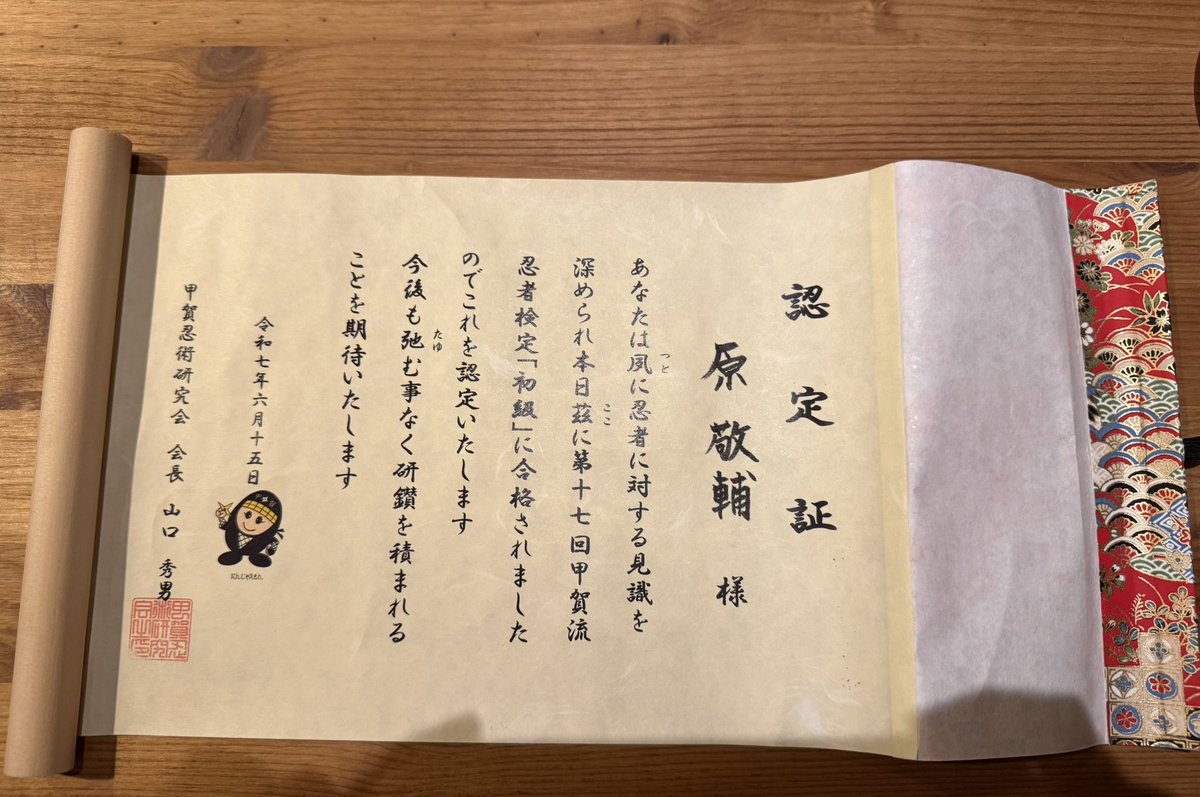 認定証
原敬輔 様
あなたは夙に忍者に対する見識を
つと
深められ本日茲に第十七回甲賀流
ここ
忍者検定「初級」に合格されました
のでこれを認定いたします
今後も弛む事なく研鑚を積まれる
たゆ
ことを期待いたします
令和七年六月十五日
にんじゃえもん
甲賀忍術研究会 会長 山口 秀男